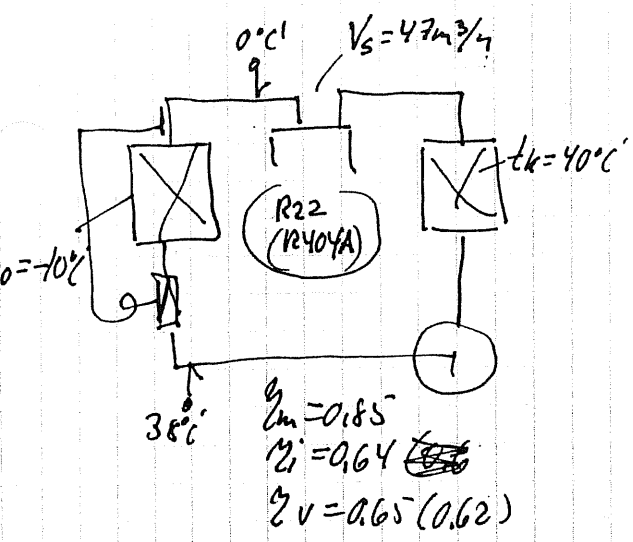 0°C
Vs = 47m³/h
tk = 40°C
R22
(R404A)
o = -10°C
38°C
ηm = 0,85
ηi = 0,64
ηv = 0,65 (0,62)